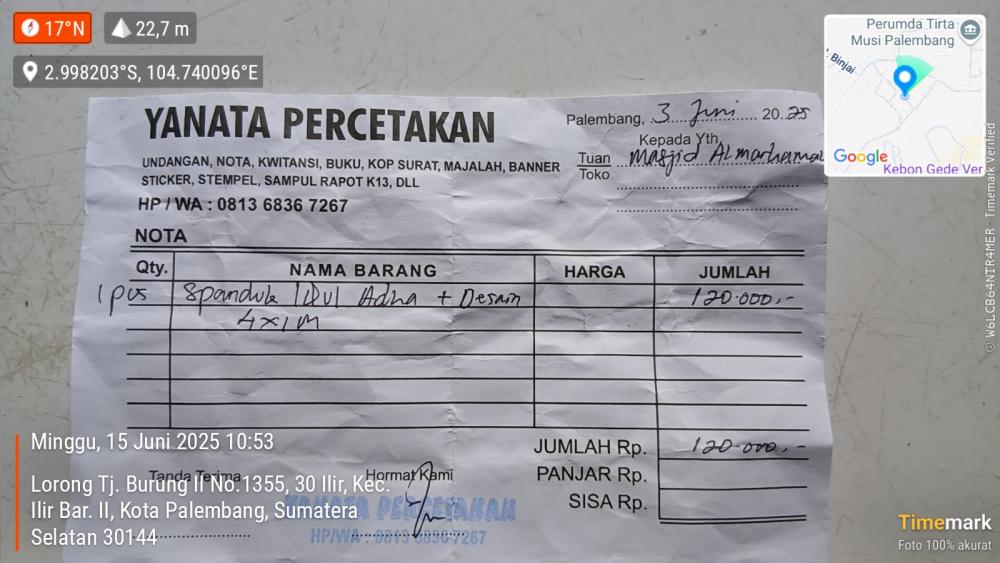 17°N
22,7 m
2.998203°S, 104.740096°E
Perumda Tirta
Musi Palembang
Binjai
Google
Kebon Gede Ver
YANATA PERCETAKAN
UNDANGAN, NOTA, KWITANSI, BUKU, KOP SURAT, MAJALAH, BANNER
STICKER, STEMPEL, SAMPUL RAPOT K13, DLL
HP / WA : 0813 6836 7267
Palembang, 3 Juni 20.25
Kepada Yth,
Tuan Masjid Al marhamah
Toko
NOTA
Qty. NAMA BARANG HARGA JUMLAH
1 pcs Spanduk Idul Adha + Desain 120.000,-
4x1 M
JUMLAH Rp. 120.000,-
PANJAR Rp.
SISA Rp.
Tanda Terima
Hormat Kami
YANATA PERCETAKAN
HP/WA : 0813 6836 7267
Minggu, 15 Juni 2025 10:53
Lorong Tj. Burung II No.1355, 30 Ilir, Kec.
Ilir Bar. II, Kota Palembang, Sumatera
Selatan 30144
Timemark
Foto 100% akurat
© W6LCB64NTR4MER Timemark Verified